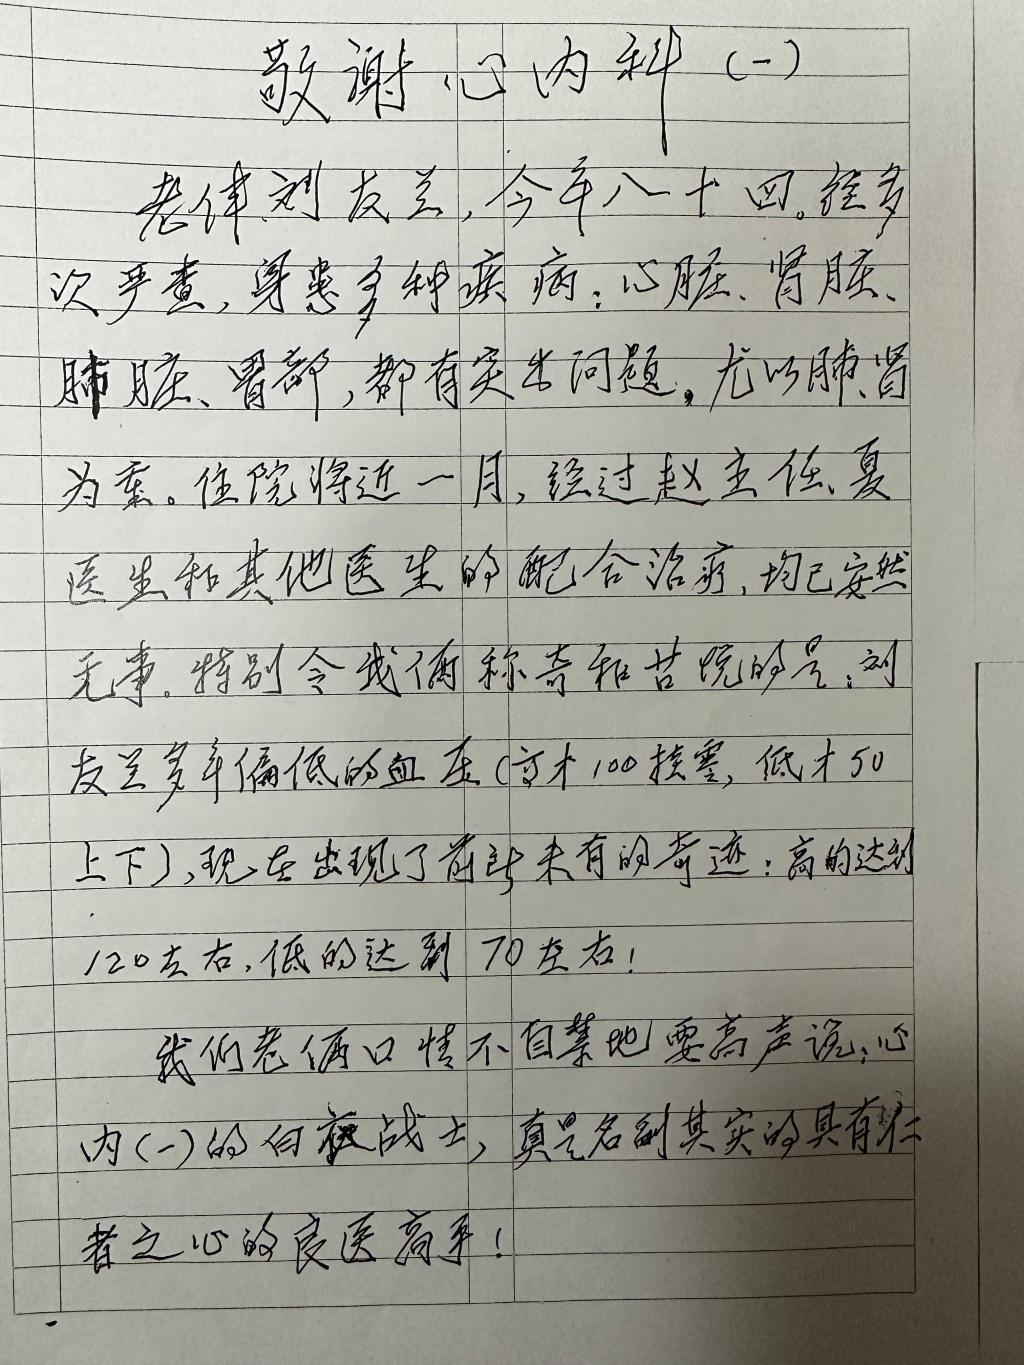 敬谢心内科(一)
老伴刘友兰,今年八十四。经多
次严查,身患多种疾病:心脏、肾脏、
肺脏、胃部,都有突出问题。尤以肺、肾
为重。住院将近一月,经过赵主任、夏
医生和其他医生的配合治疗,均已安然
无事。特别令我俩称奇和喜悦的是:刘
友兰多年偏低的血压(高才100挂零,低才50
上下),现在出现了前所未有的奇迹:高的达到
120左右,低的达到70左右!
我们老俩口情不自禁地要高声说:心
内(一)的白衣战士,真是名副其实的具有仁
者之心的良医高手!